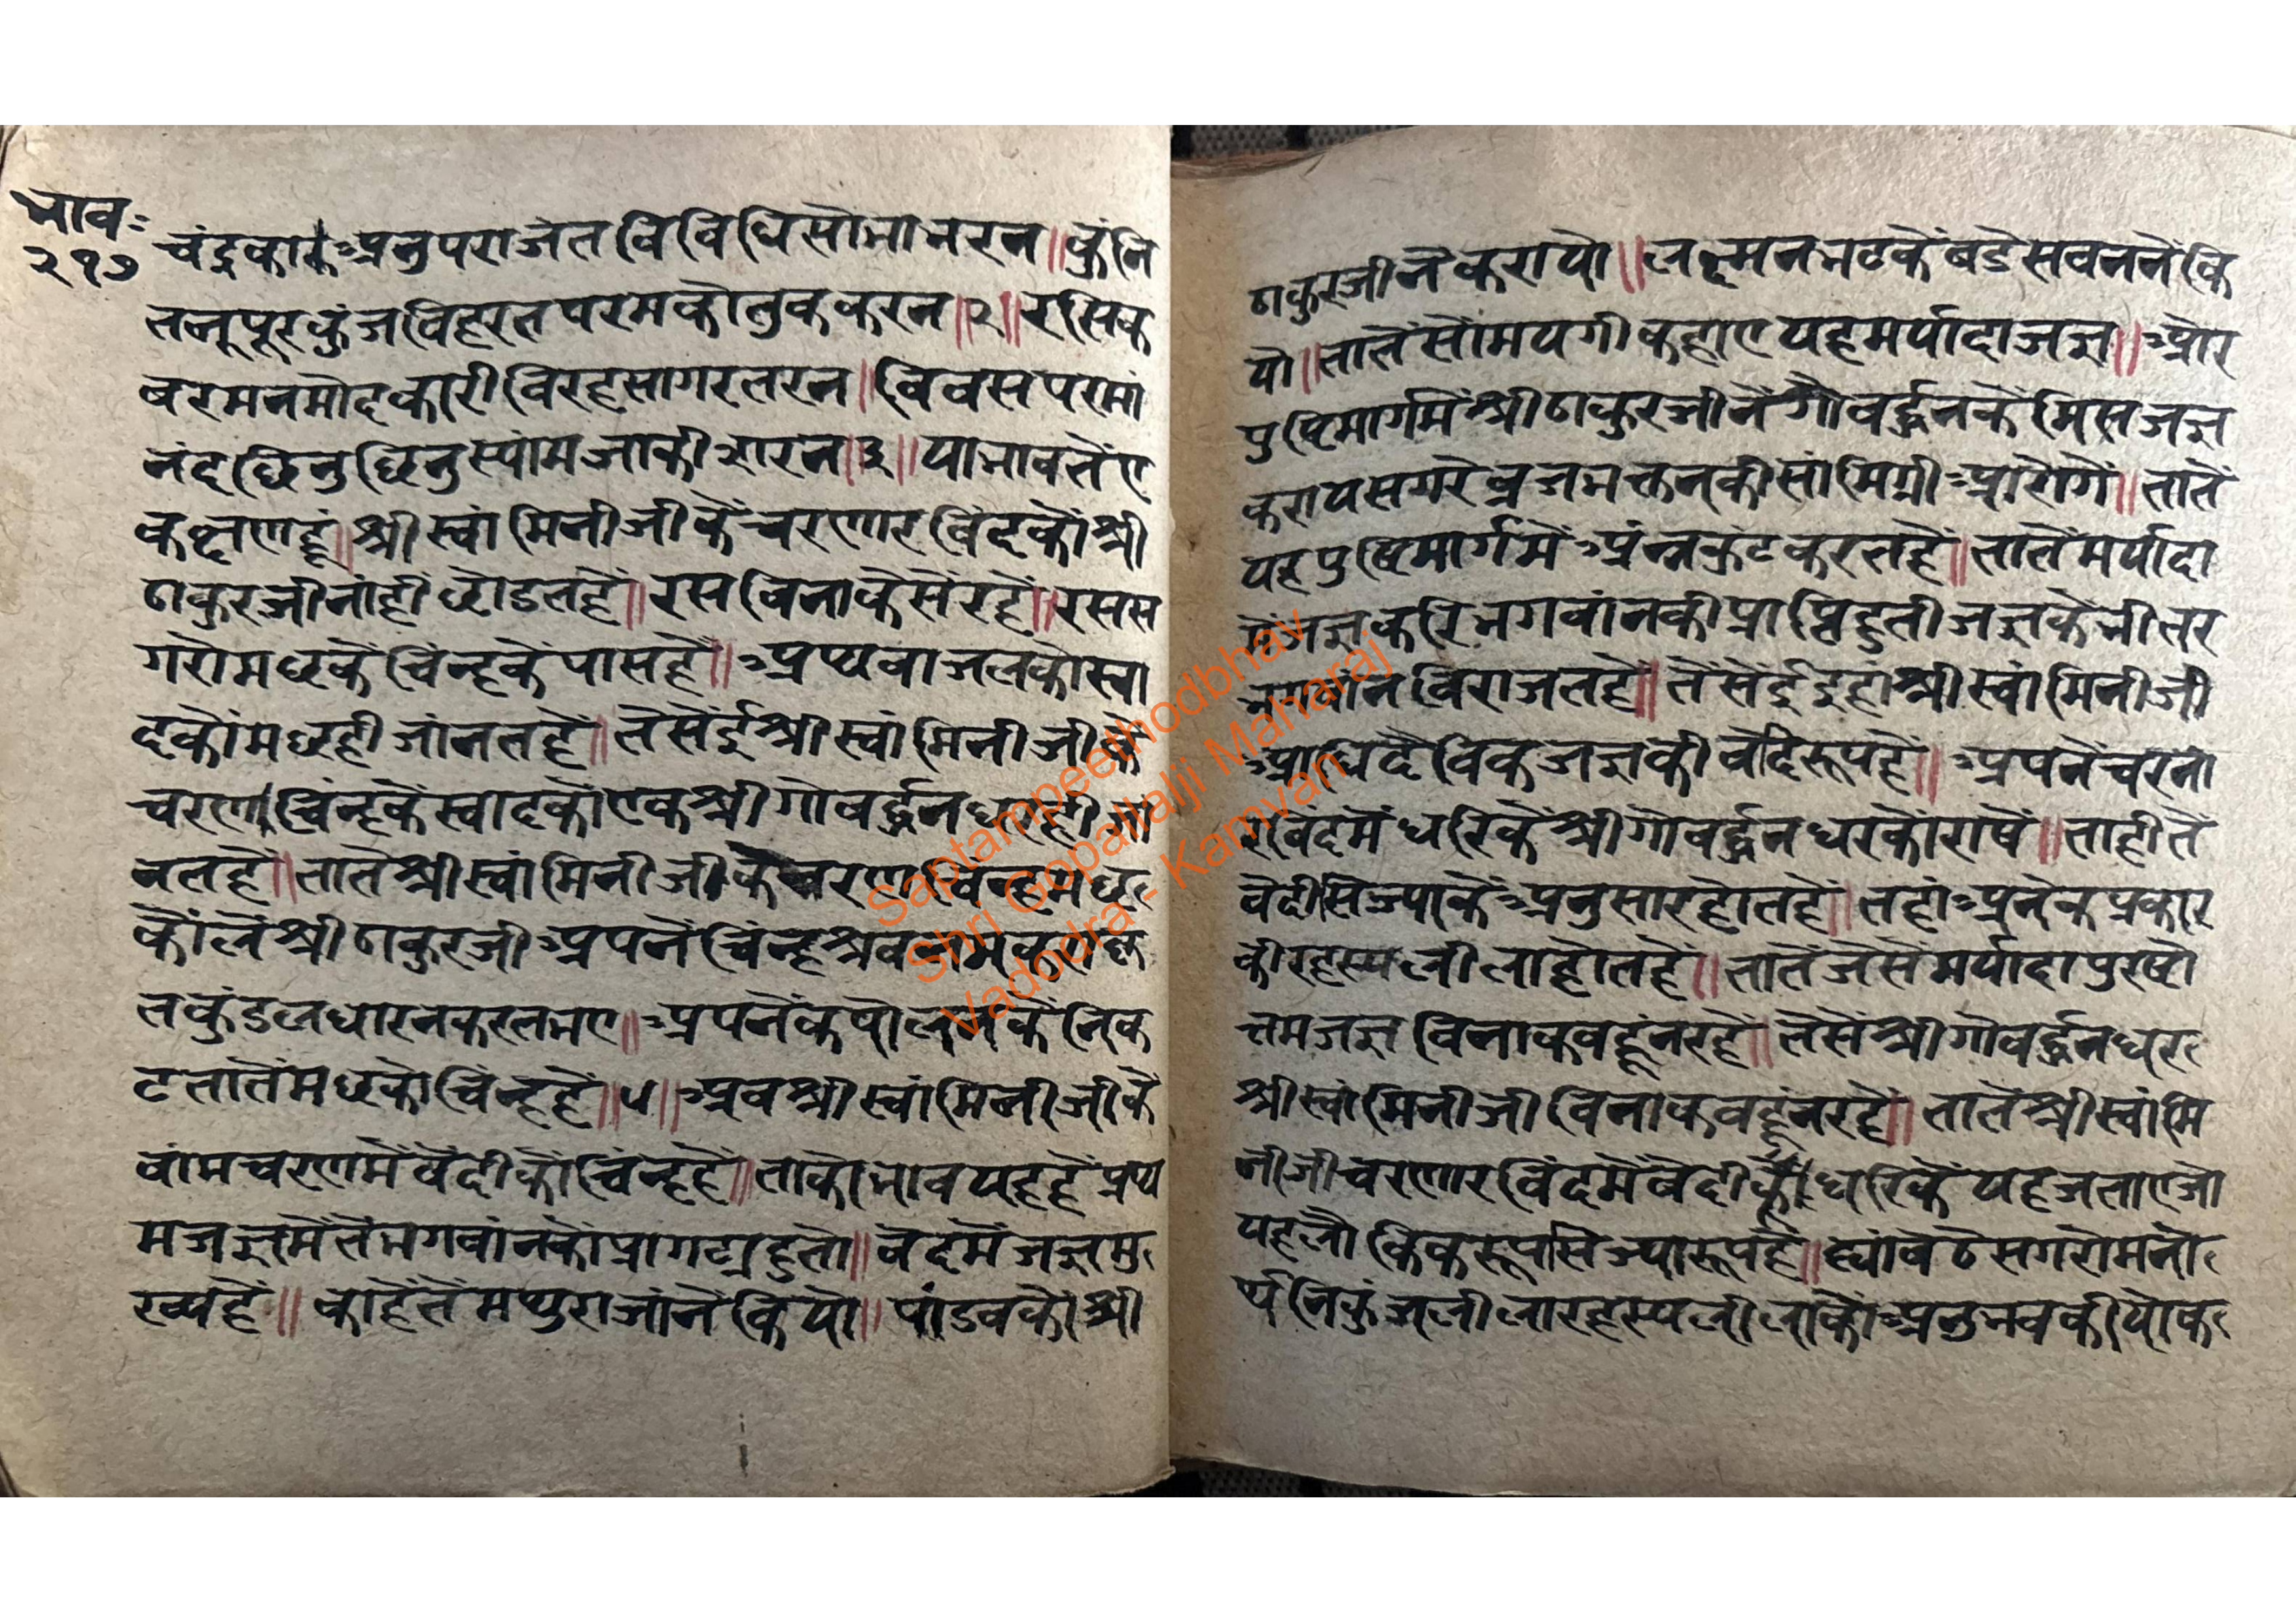 भाव:
२१७
चंद्रकार अनुपराजत विविधिसोभाभरन॥ कुंनि
तनूपूरकुंजविहरत परमकौतुककरन॥२॥ रसिक
वरमनमोदकारी विरहसागरतरन॥ विवस परमां
नंद छिनुछिनु स्यांमजाकी सारन॥३॥ या भावतें ए
कक्षणहूं॥ श्री स्वांमिनीजीकें चरणारविंदकों श्री
ठाकुरजी नांहीं छोडतहें॥ रस विना कैसें रहें॥ रसस
गरो मछकें चिंन्हकें पासहें॥ अथवा जलको स्वा
दकों मछही जांनतहें॥ तैसेंई श्री स्वांमिनीजीकें
चरण चिंन्हकें स्वादकों एक श्रीगोवर्द्धनधरही जां
नतहें॥ तातें श्री स्वांमिनीजीकें चरण चिंन्ह मछ
कोंलें श्री ठाकुरजी अपनें चिंन्ह श्रवनमें
तकुंडल धारन करत भए॥ अपनें कपोलनकें निक
ट तातें मछको चिंन्हहें॥५॥ अब श्री स्वांमिनीजीकें
वांम चरणमें वेदीकों चिंन्हहें॥ ताको भाव यहहें प्रथ
म जज्ञमेंतें भगवांनकों प्रागट्य हुतो॥ वेदमें जज्ञ मु
ख्यहें॥ काहेतें मथुराजांनें कियो॥ पांडवकों श्री
ठाकुरजीनें करायो॥ लक्ष्मनभटकें बडेसबननें कि
यो॥ तातें सोंमयगी कहाए यह मर्यादा जज्ञ॥ और
पुष्टिमार्गमें श्री ठाकुरजीनें गोवर्द्धनकें मिस जज्ञ
कराय सगरे व्रजभक्तनकी सांमिग्री आरोगें॥ तातें
यह पुष्टिमार्गमें अंन्नकूट करतहें॥ तातें मर्यादा
में जज्ञ करि भगवांनकी प्राप्ति हुती जज्ञकें भीतर
भगवांन विराजतहें॥ तैंसेंई इहां श्री स्वांमिनीजी
आधिदैविक जज्ञकी वेदि रूपहें॥ अपनें चरनां
रविंदमें धरिकें श्री गोवर्द्धनधरकों राषें॥ ताहीतें
वेदी सिज्याकें अनुसार होतहें॥ तहां अनेक प्रकार
की रहस्य लीला होतहें॥ तातें जैसें मर्यादा पुरषो
त्तम जज्ञ विना कबहूं न रहें॥ तैसें श्री गोवर्द्धनधर
श्री स्वांमिनीजी विना कबहूं न रहें॥ तातें श्री स्वांमि
नीजी चरणारविंदमें वेदीकूं धरिकें यह जताए जो
यह लौकिक रूप सिज्या रूपहें॥ ह्यां बेठे सगरो मनो
र्थ निकुंज लीला रहस्य लीलाकों अनुभव कीयो क